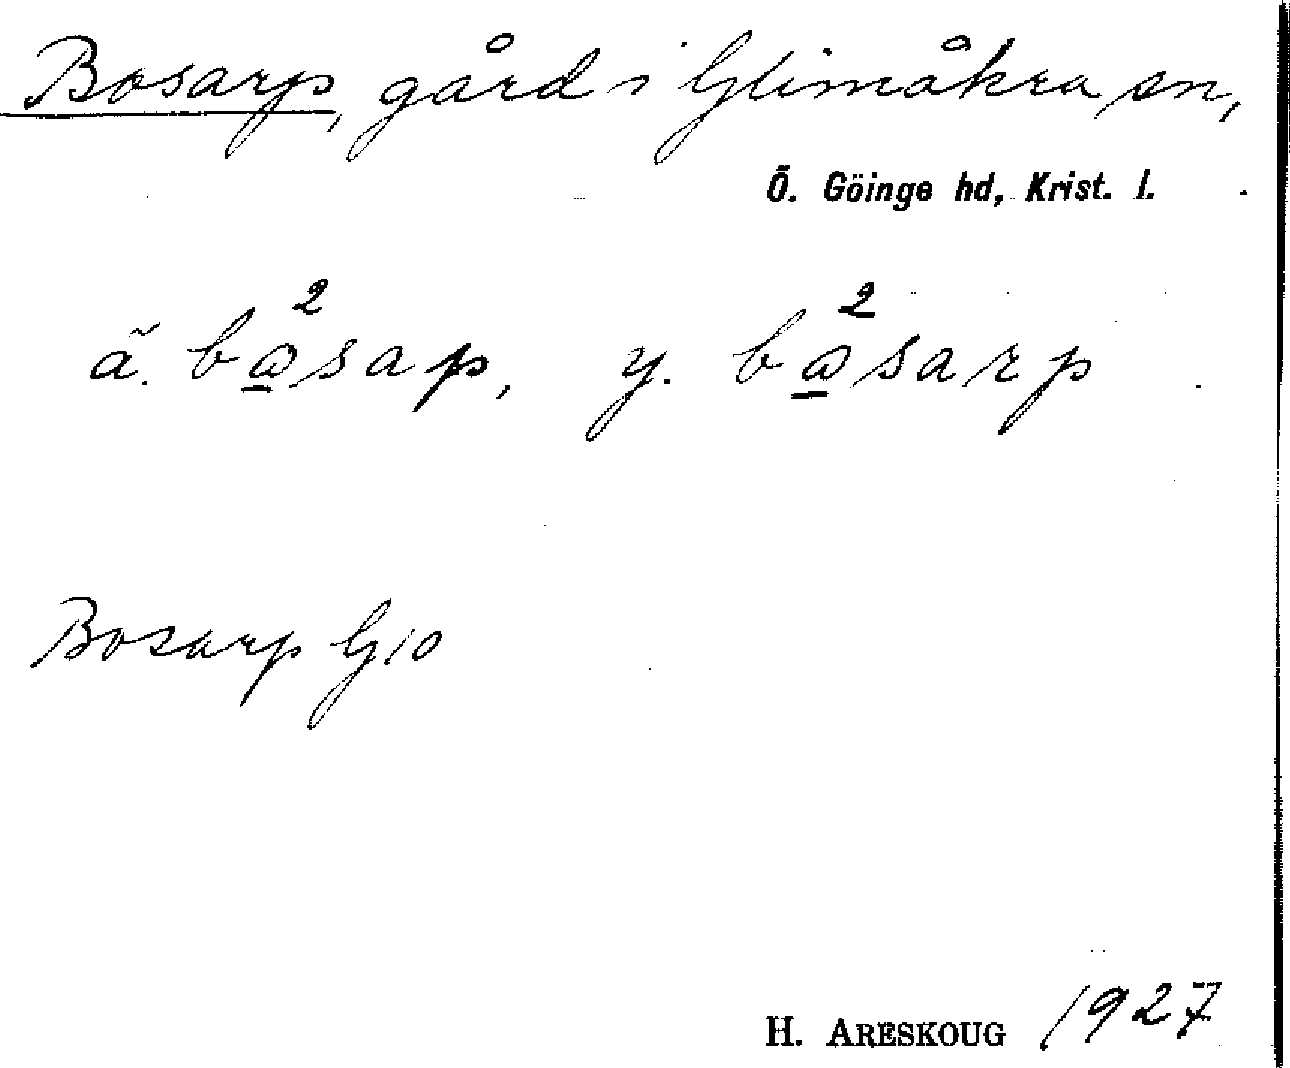 Bosarp, gård i Glimåkra sn,
Ö. Göinge hd, Krist. l.
ä. bo̲²sap, y. bo̲²sarp
Bosarp G10
H. ARESKOUG 1927